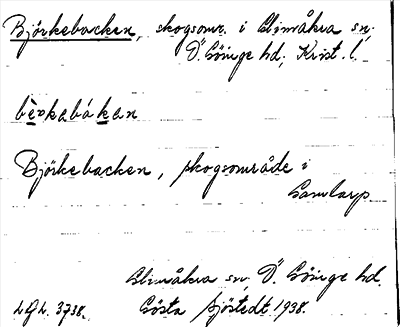 Björkebacken, skogsomr. i Glimåkra sn,
Ö. Göinge hd, Krist. l.
bèrkabákan
Björkebacken, skogsområde i
Gamlarp.
Glimåkra sn, Ö. Göinge hd.
Gösta Sjöstedt 1938.
LAL. 3738.